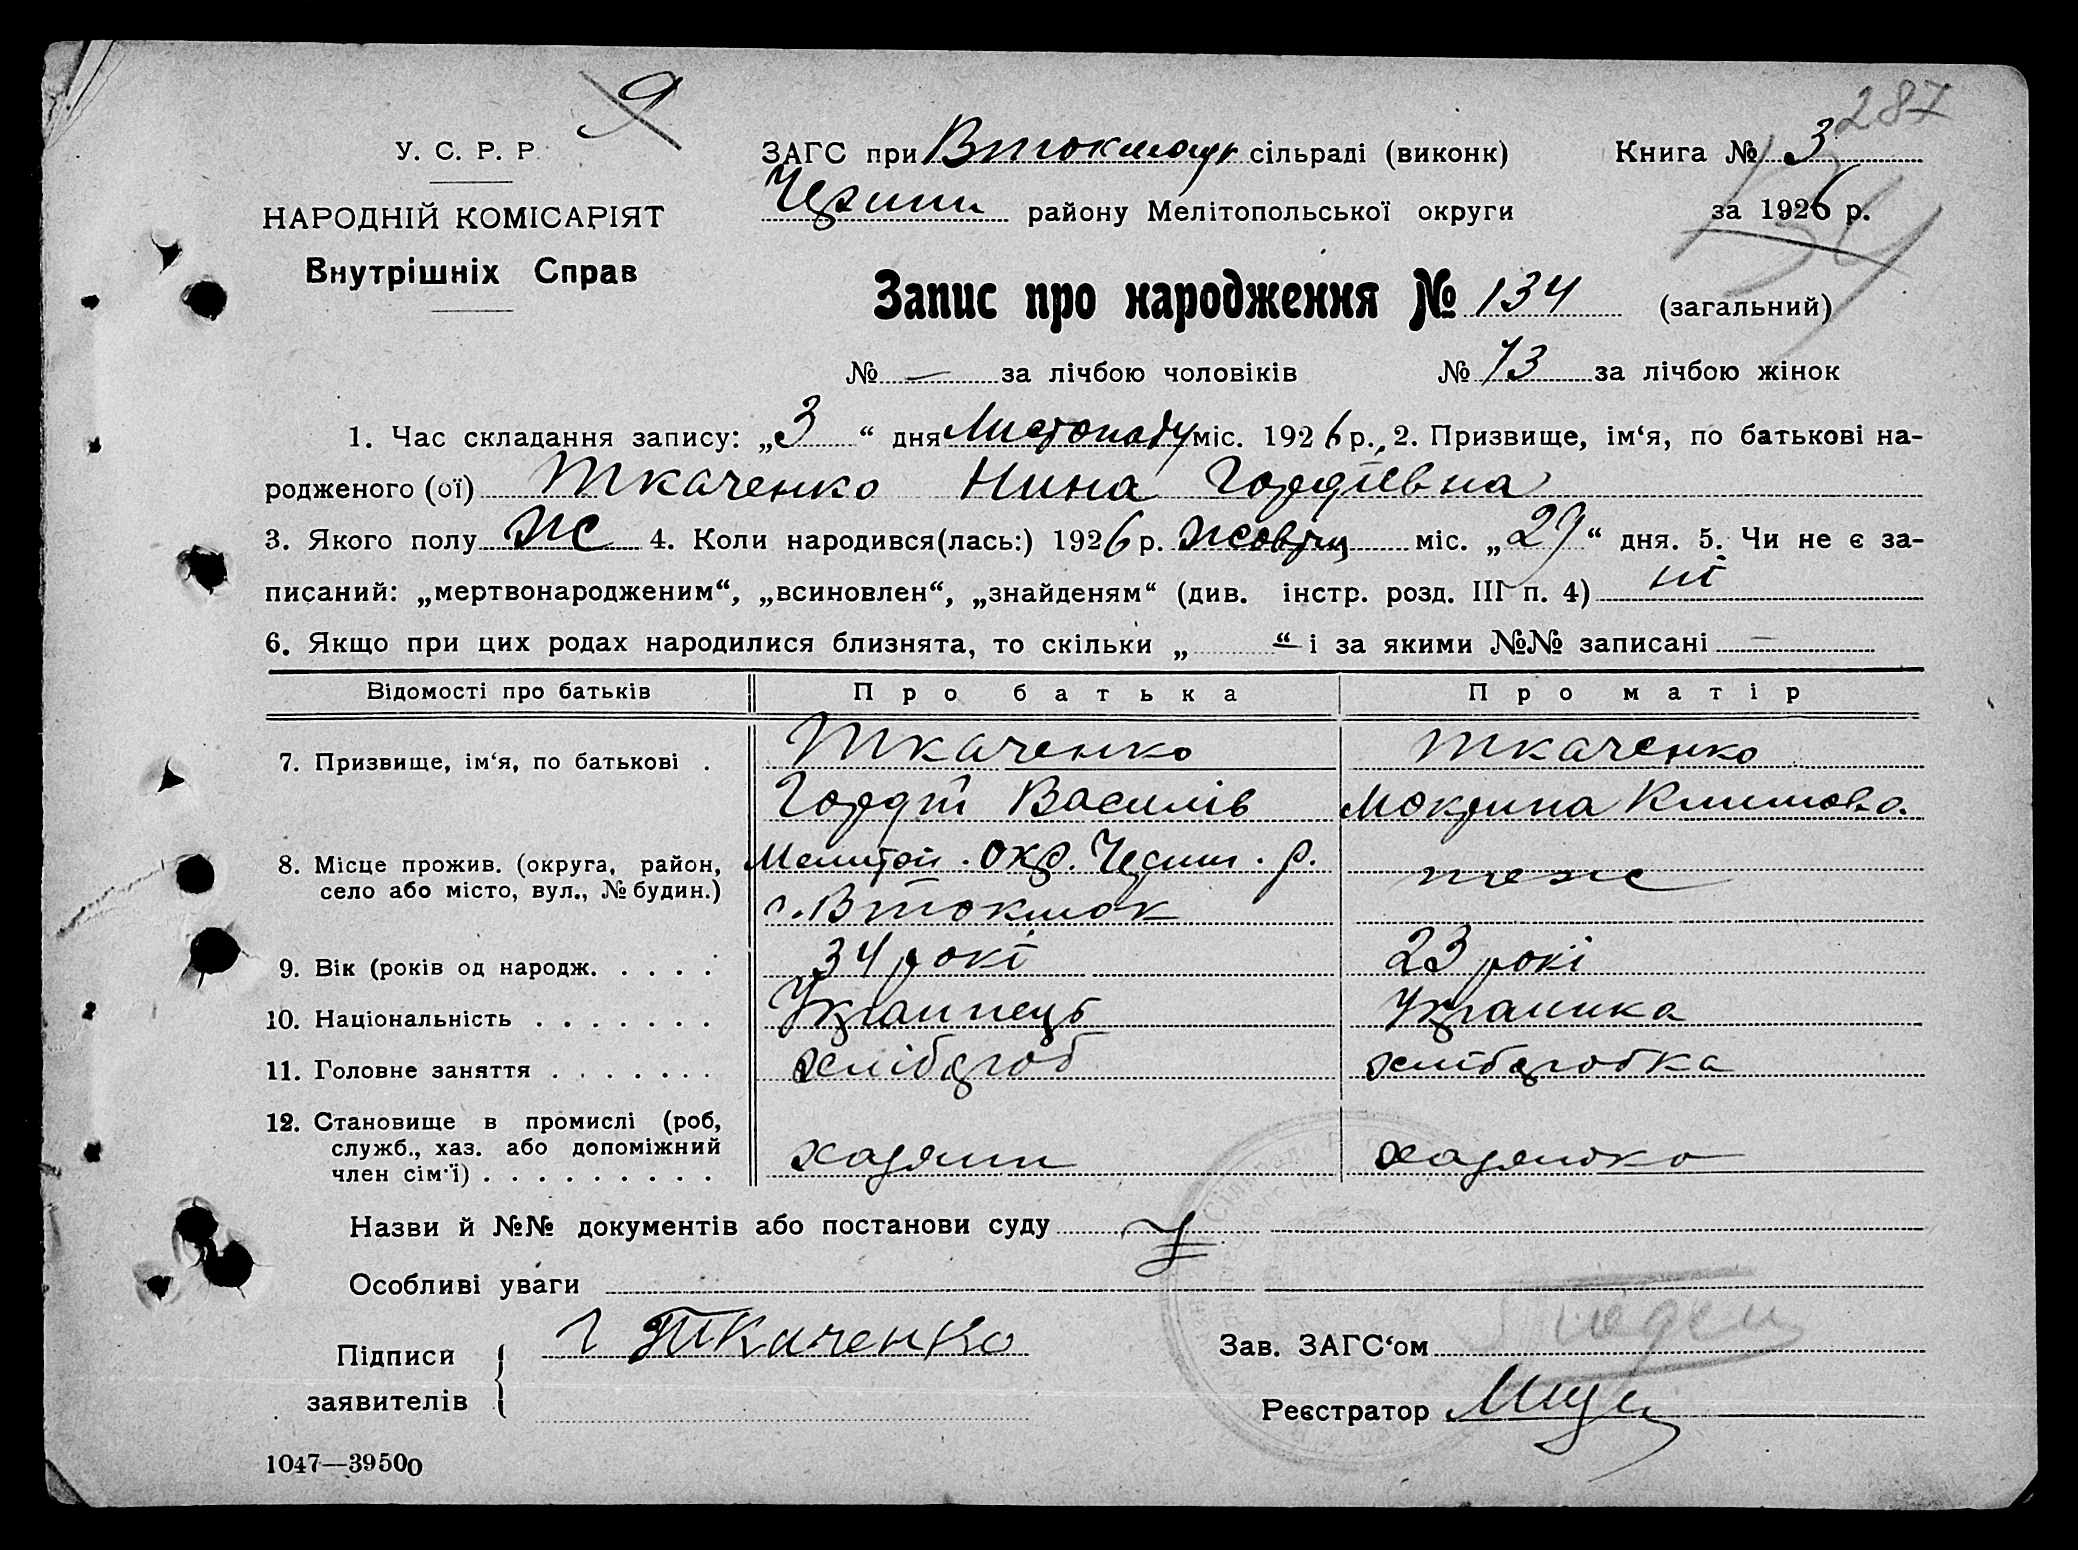 9
287
134
У. С. Р. Р.
НАРОДНІЙ КОМІСАРІЯТ
Внутрішніх Справ
ЗАГС при Втокмацк сільраді (виконк) Книга № 3
району Мелітопольської округи за 1926 р.
Запис про народження № 134 (загальний)
№ – за лічбою чоловіків № 73 за лічбою жінок
1. Час складання запису: „3“ дня Листопаду міс. 1926 р., 2. Призвище, ім‘я, по батькові на-
родженого (ої) Ткаченко Нина Гордіївна
3. Якого полу ж 4. Коли народився(лась:) 1926 р. жовтн міс. „27“ дня. 5. Чи не є за-
писаний: „мертвонародженим“, „всиновлен“, „знайденям“ (див. інстр. розд. III п. 4) ні
6. Якщо при цих родах народилися близнята, то скільки „ – “ і за якими №№ записані –
Відомості про батьків Про батька Про матір
7. Призвище, ім‘я, по батькові . Ткаченко Ткаченко
Гордій Василів Мокрина Климова
8. Місце прожив. (округа, район, Мелитоп. окр. р. теж
село або місто, вул., № будин.) с. Втокмак
9. Вік (років од народж. . . . . . 34 рокі 23 рокі
10. Національність . . . . . . . Українець Українка
11. Головне заняття . . . . . . . хлібороб хліборобка
12. Становище в промислі (роб,
служб., хаз. або допоміжний хазяин хазяйка
член сім‘ї) . . . . . . . . .
Назви й №№ документів або постанови суду
Особливі уваги
Підписи Г Ткаченко Зав. ЗАГС‘ом
заявителів Реєстратор
1047—39500